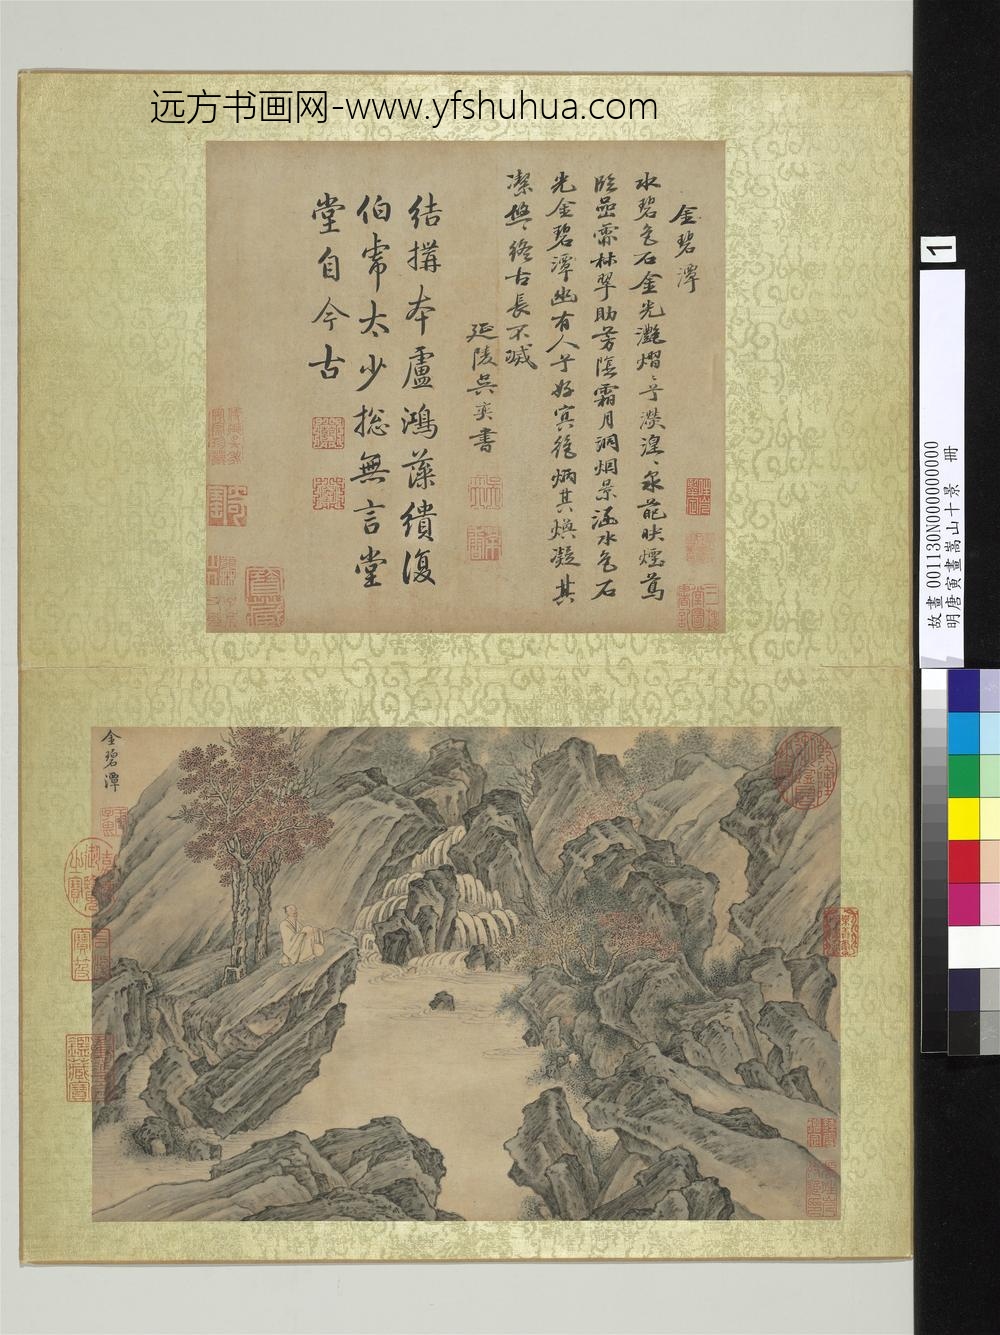 远方书画网-www.yfshuhua.com
金碧潭
水碧色石金光灩熠〻兮濙湟〻泉葩映煙蔦
臨嵒霏林翠助芳陰霜月洞烟景涵水色石
光金碧潭幽有人兮好冥絶炳其煥凝其
潔悠〻終古長不滅
延陵吳奕書
結搆本盧鴻藻繢復
伯常太少総無言堂
堂自今古
金碧潭
1
故畫 001130N000000000
明唐寅畫嵩山十景 冊